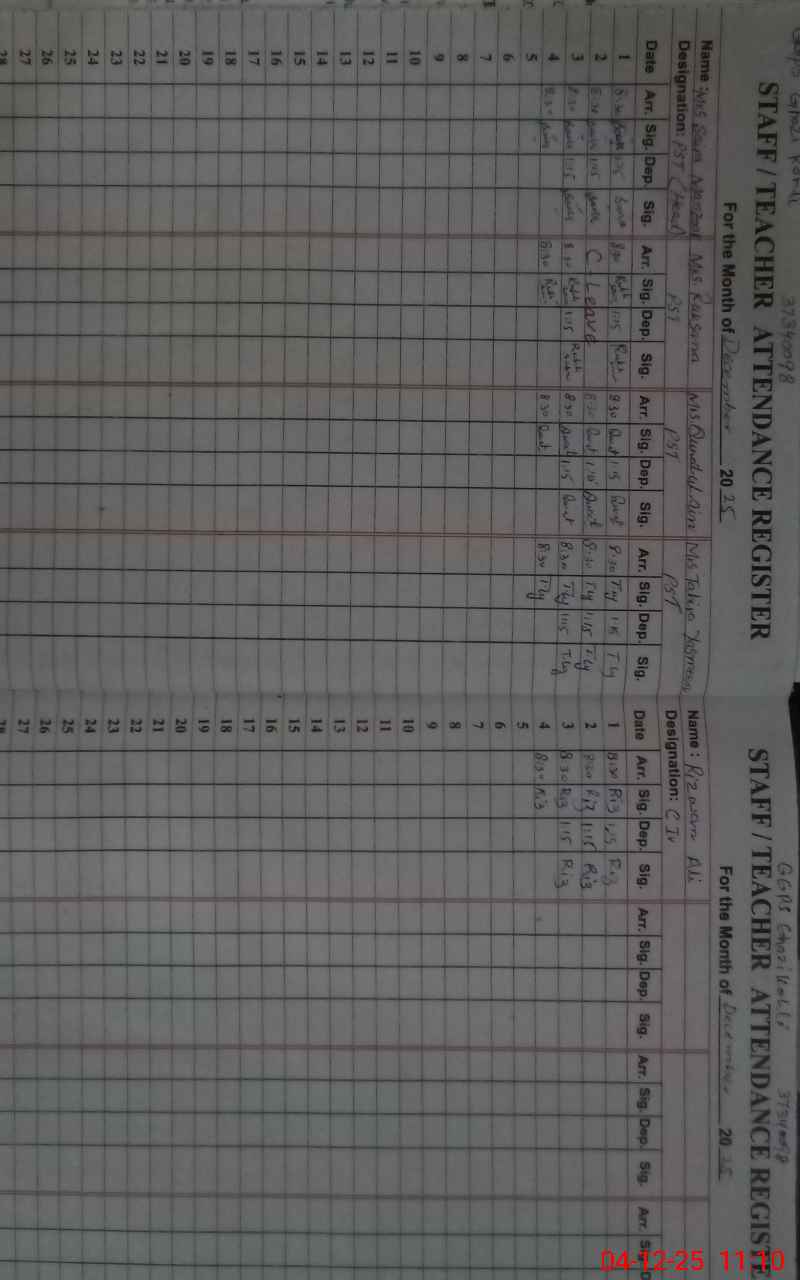 GGPS Ghazi Kohli 37340098
STAFF / TEACHER ATTENDANCE REGISTER
For the Month of December 2025
Name: Mrs Mrs. Ruksana Mrs Qurat ul Ain Mrs Tahira Yasmeen
Designation: PST (Head) PST PST PST
Date Arr. Sig. Dep. Sig. Arr. Sig. Dep. Sig. Arr. Sig. Dep. Sig. Arr. Sig. Dep. Sig.
1 8:30 8:30 1:15 8:30 1:15 8:30 Tly 1:15 Tly
2 8:30 1:15 C Leave 8:30 8:30 Tly 1:15 Tly
3 8:30 1:15 8:30 1:15 8:30 1:15 8:30 Tly 1:15 Tly
4 8:30 8:30 8:30 8:30 Tly
5
6
7
8
9
10
11
12
13
14
15
16
17
18
19
20
21
22
23
24
25
26
27
28
GGPS Ghazi Kohli 37340098
STAFF / TEACHER ATTENDANCE REGISTE
For the Month of December 2025
Name: Rizwan Ali
Designation: C IV
Date Arr. Sig. Dep. Sig. Arr. Sig. Dep. Sig. Arr. Sig. Dep. Sig. Arr.
1 8:30 Riz Riz
2 8:30 Riz 1:15 Riz
3 8:30 Riz 1:15 Riz
4 8:30 Riz
5
6
7
8
9
10
11
12
13
14
15
16
17
18
19
20
21
22
23
24
25
26
27
28
04-12-25 11:10